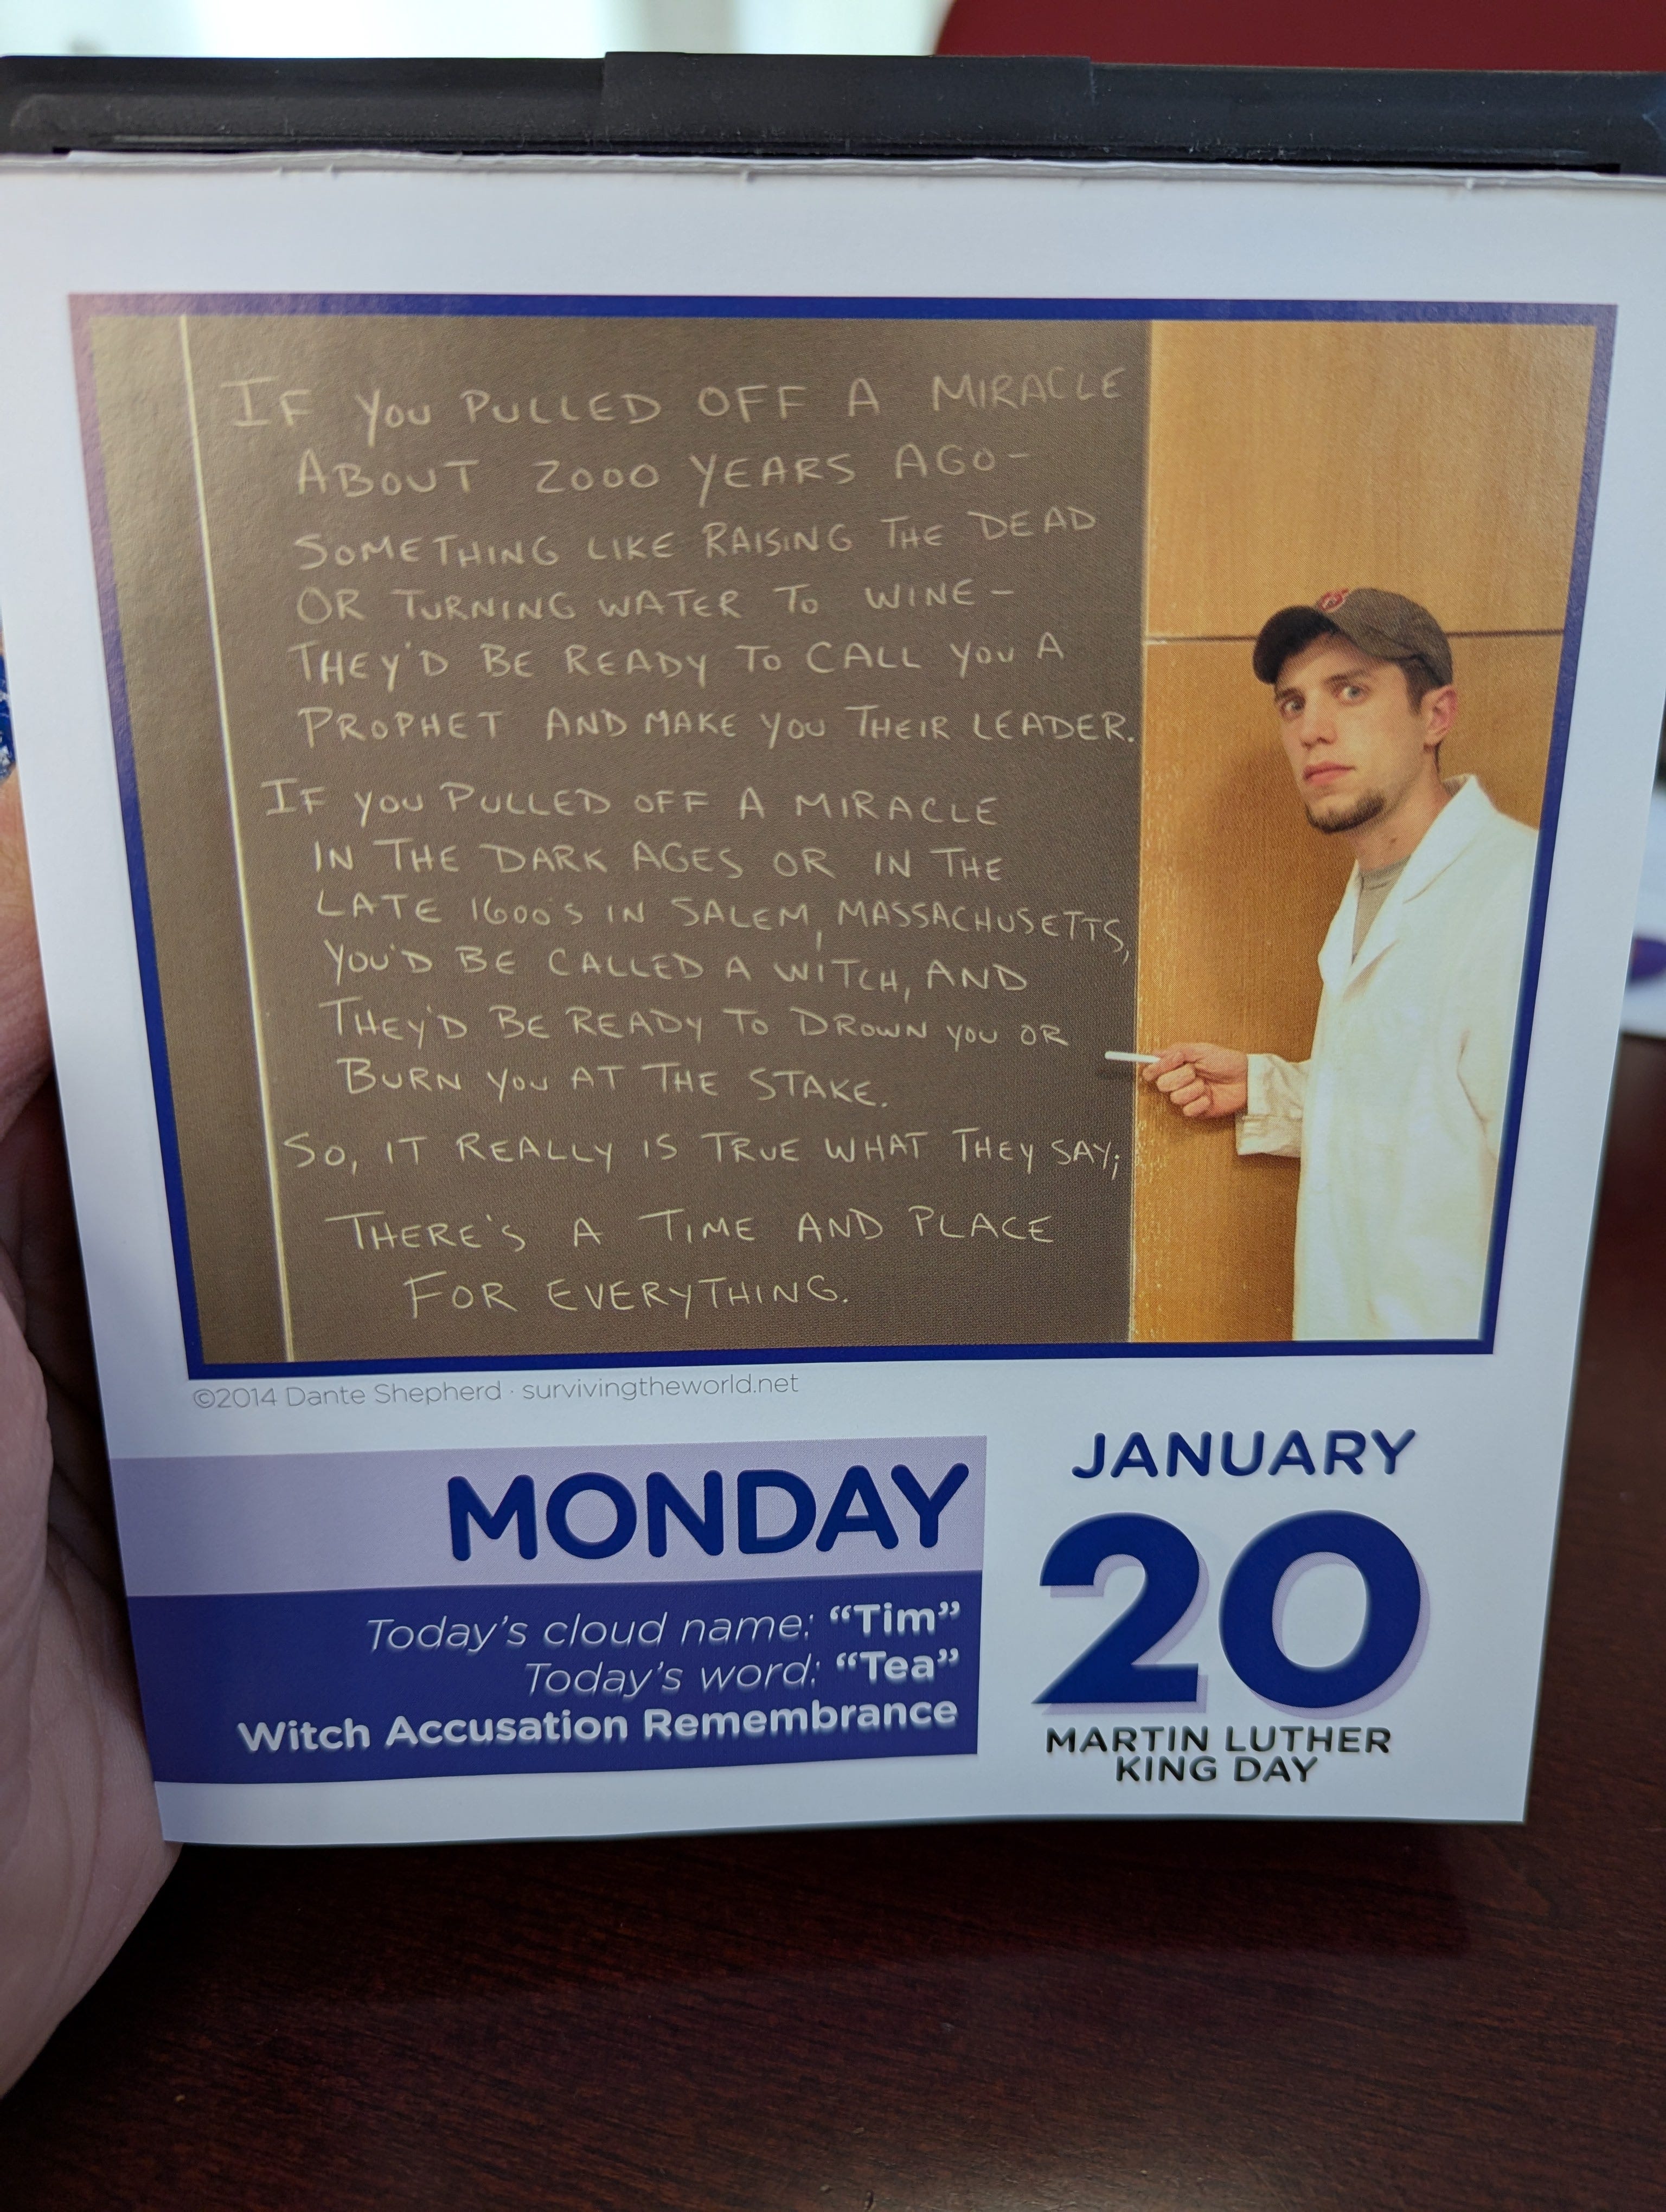 IF YOU PULLED OFF A MIRACLE
ABOUT 2000 YEARS AGO-
SOMETHING LIKE RAISING THE DEAD
OR TURNING WATER TO WINE-
THEY'D BE READY TO CALL YOU A
PROPHET AND MAKE YOU THEIR LEADER.
IF YOU PULLED OFF A MIRACLE
IN THE DARK AGES OR IN THE
LATE 1600'S IN SALEM, MASSACHUSETTS,
YOU'D BE CALLED A WITCH, AND
THEY'D BE READY TO DROWN YOU OR
BURN YOU AT THE STAKE.
SO, IT REALLY IS TRUE WHAT THEY SAY;
THERE'S A TIME AND PLACE
FOR EVERYTHING.
©2014 Dante Shepherd · survivingtheworld.net
MONDAY
Today's cloud name: “Tim”
Today's word: “Tea”
Witch Accusation Remembrance
JANUARY
20
MARTIN LUTHER
KING DAY